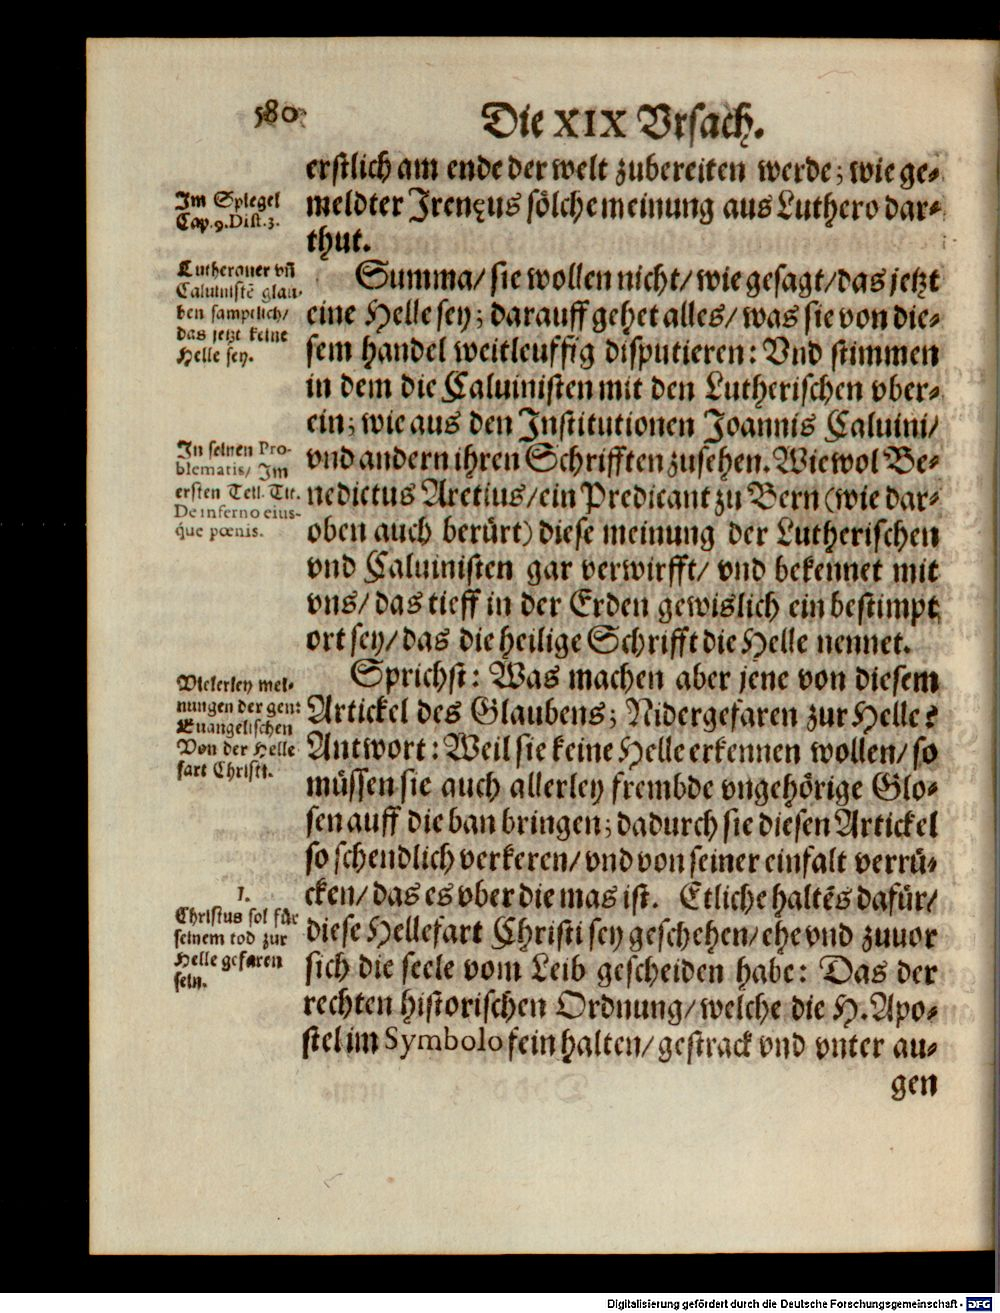 580
Die XIX Vrsach.
erstlich am ende der welt zubereiten werde; wie ge-
Im Spiegel
Cap. 9. Dist. 3.
meldter Irenęus sölche meinung aus Luthero dar-
thut.
Lutheraner vñ
Caluinistẽ glau-
ben samptlich/
das jetzt keine
Helle sey.
Summa/ sie wollen nicht/ wie gesagt/ das jetzt
eine Helle sey; darauff gehet alles/ was sie von die-
sem handel weitleuffig disputieren: Vnd stimmen
in dem die Caluinisten mit den Lutherischen vber-
ein; wie aus den Institutionen Joannis Caluini/
In seinen Pro-
blematis/ Im
ersten Teil. Tit.
De inferno eius-
que pœnis.
vnd andern ihren Schrifften zusehen. Wiewol Be-
nedictus Aretius/ ein Predicant zu Bern (wie dar-
oben auch berürt) diese meinung der Lutherischen
vnd Caluinisten gar verwirfft/ vnd bekennet mit
vns/ das tieff in der Erden gewislich ein bestimpt
ort sey/ das die heilige Schrifft die Helle nennet.
Vielerley mei-
nungen der gen:
Euangelischen
Von der Helle
fart Christi.
Sprichst: Was machen aber jene von diesem
Artickel des Glaubens; Nidergefaren zur Helle?
Antwort: Weil sie keine Helle erkennen wollen/ so
müssen sie auch allerley frembde vngehörige Glo-
sen auff die ban bringen; dadurch sie diesen Artickel
so schendlich verkeren/ vnd von seiner einfalt verrü-
cken/ das es vber die mas ist. Etliche haltẽs dafür/
1.
Christus sol für
seinem tod zur
Helle gefaren
sein.
diese Hellefart Christi sey geschehen/ ehe vnd zuuor
sich die seele vom Leib gescheiden habe: Das der
rechten historischen Ordnung/ welche die H. Apo-
stel im Symbolo fein halten/ gestrack vnd vnter au-
gen
Digitalisierung gefördert durch die Deutsche Forschungsgemeinschaft - DFG